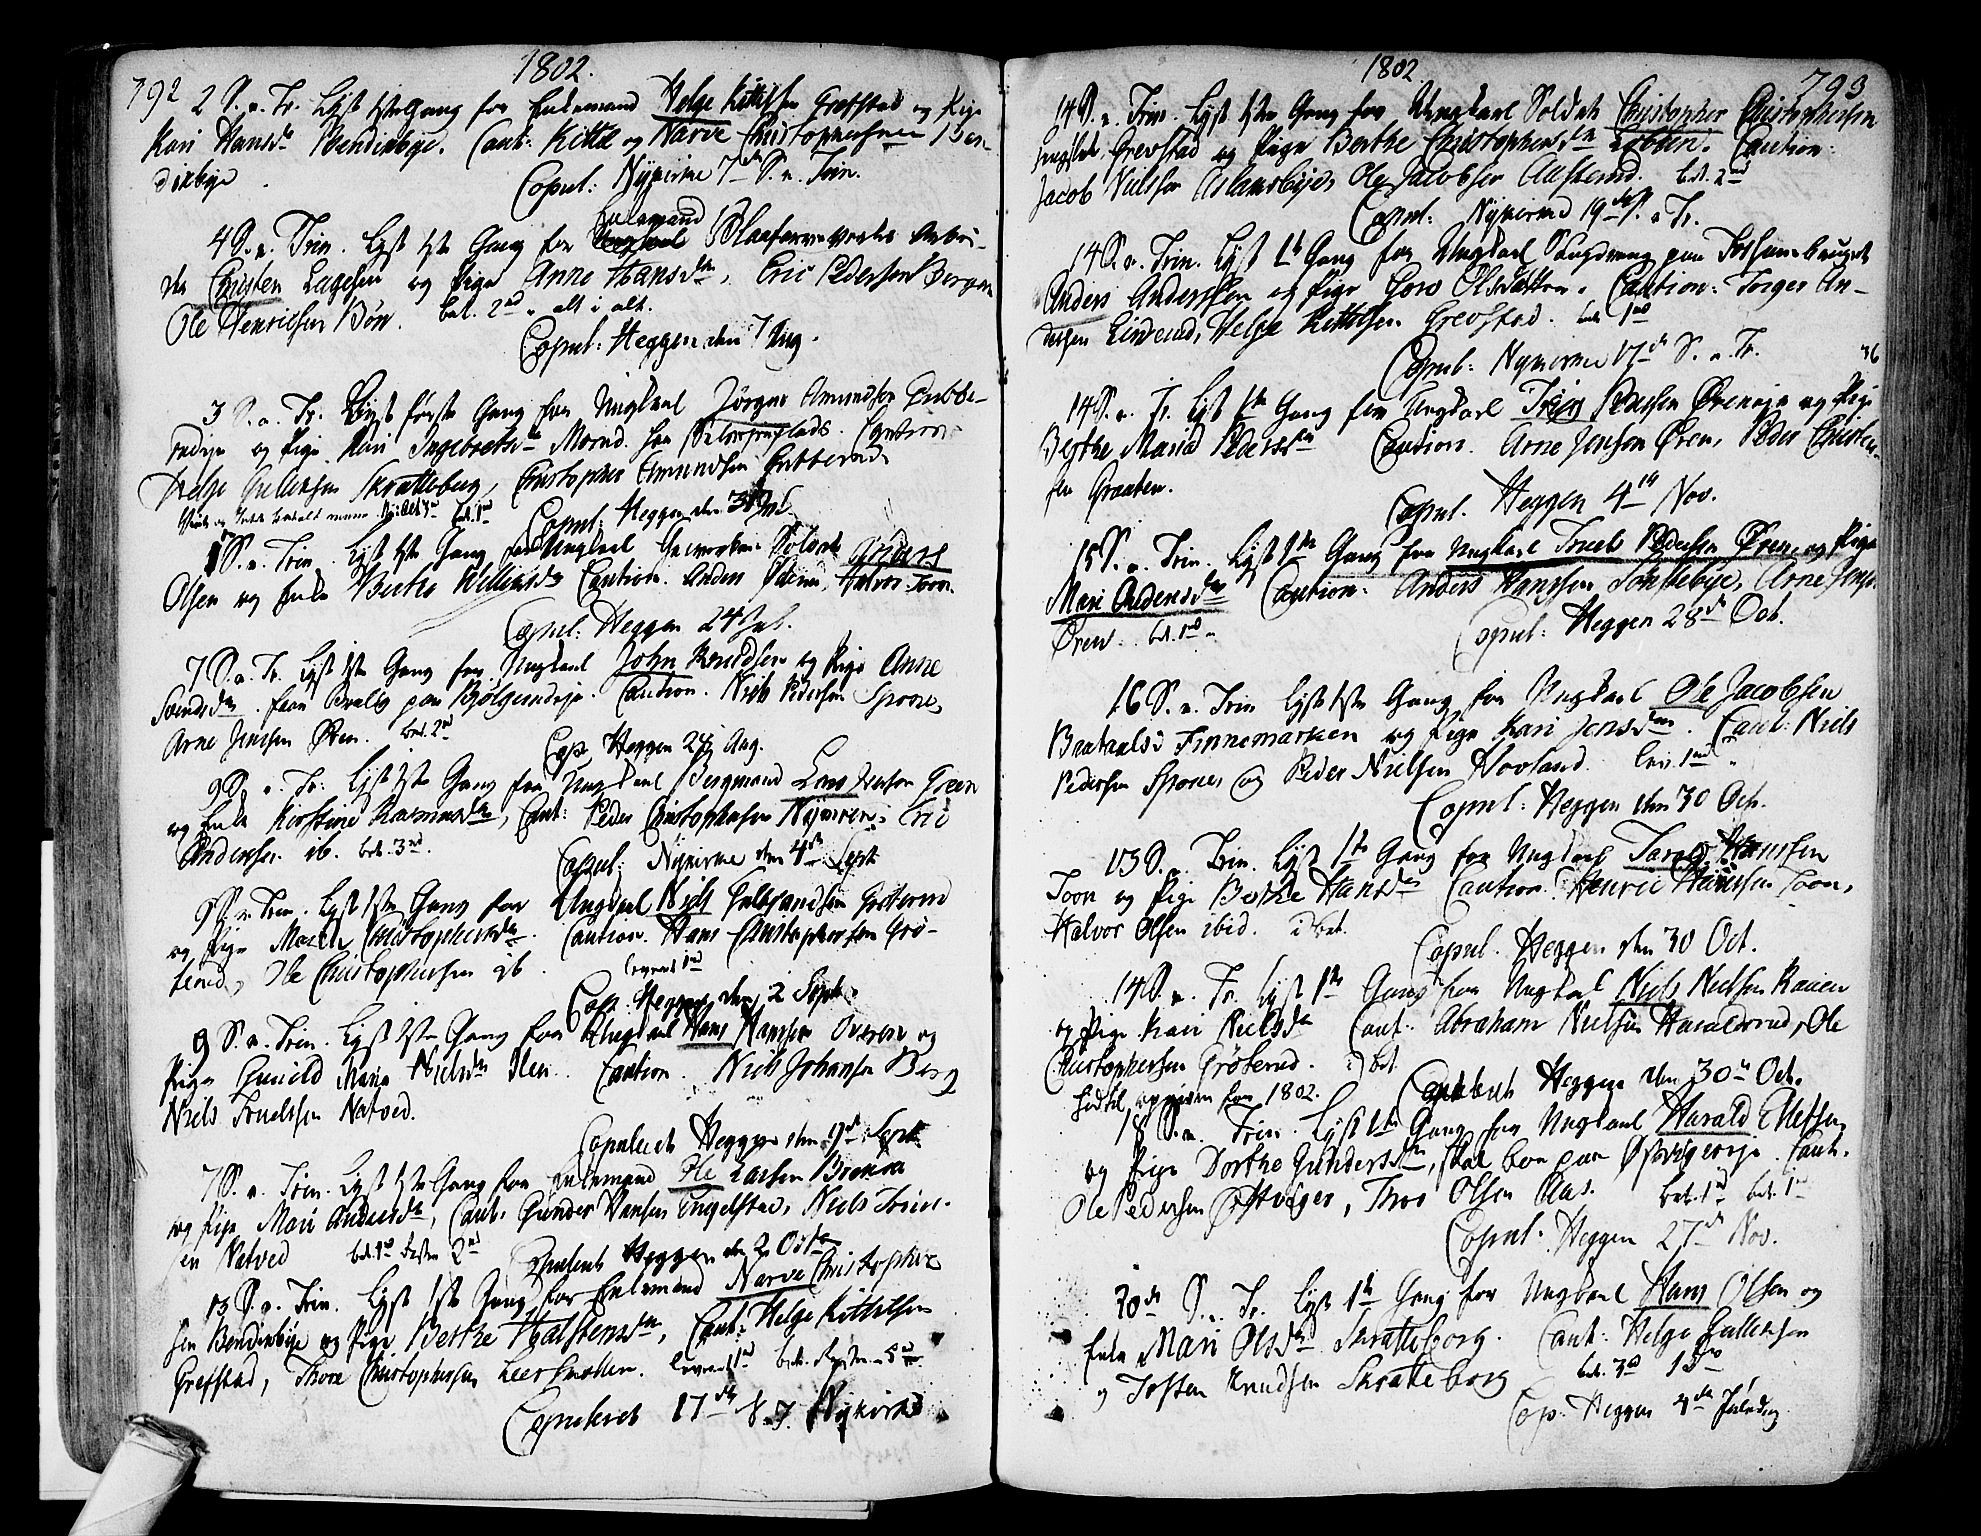 792
1802.
2 S. a. Tr. Lyst 1ste Gang for Enkemand Helge Kittilsen Grefstad og Pige
Kari Hansdr Bendixbye. Caut: Kittil og Narve Christophersen Ben-
dixbye.
Copul: Nykirke 7de S. a. Trin.
4 S. a. Trin. Lyst 1ste Gang for Enkemand Blaafarveverks Arbei-
der Christen Lagesen og Pige Anne Hansdtr, Eric Pedersen Bergan
Ole Henrichsen Bøn. bet. 2nd alt i alt.
Copul: Heggen den 7 Aug.
3 S. a. Tr. Lyst første Gang for Ungkarl Jörgen Amundsen Gubbe-
rudeje og Pige Kari Ingebretsdr Moerud. Caution
Helge Gullensen Skratteborg, Christopher Amundsen Gubberud
Copul: Heggen den 3 Jul.
S. a. Trin. Lyst 1ste Gang for Ungkarl Soldat Anders
Olsen og Enke Berthe Willumsdr Caution. Anders Halvor Toon.
Copul: Heggen 24 Jul.
7 S. a. Tr. Lyst 1ste Gang for Ungkarl John Knudsen og Pige Anne
Svendsdr. fra Braaten paa Bjölgerudeje. Caution. Niels Pedersen Sponen,
Arne Jensen Øren. bet. 2nd
Cop. Heggen 24 Aug.
9 S. a. Tr. Lyst 1ste Gang for Ungkarl Bergmand Lars Green
og Enke Kirstine Rasmusdtr, Caut: Peder Christophersen Nykirke, Eric
Andersen ib. bet. 3nd.
Copul: Nykirke den 4de Sept
9 S. a. Trin. Lyst 1ste Gang for Ungkarl Niels Gulbrandsen Gröterud
og Pige Maren Christophersdtr. Caution. Hans Christophersen Grö-
terud, Ole Christophersen ib. leveret 1nd
Cop. Heggen den 2 Sept.
9 S. a. Trin. Lyst 1ste Gang for Ungkarl Hans Hanssen Overen og
Pige Gunild Maria Nielsdtr Ilen. Caution. Niels Johansen Berg
Niels Truelssen Natved.
Copuleret Heggen den 9de Sept.
7 S. a. Trin. Lyst 1ste Gang for Enkemand Ole Larsen Brenna
og Pige Mari Andersdtr, Caut: Gunder Hansen Engelstad, Niels Truls-
sen Natved bet. 1nd Resten 2nd
Copuleret Heggen den 2 Octr
13 S. a. Trin. Lyst 1ste Gang for Enkemand Narve Christopher-
sen Bendixbye og Pige Berthe Halstensdtr, Caut: Helge Kittilsen
Grefstad, Thore Christophersen Leersmollen. leveret 1nd bet. Resten 5nd
Copuleret 17de S. a. T. Nykirke
793
1802
14 S. a. Trin. Lyst 1ste Gang for Ungkarl Soldat Christopher Christophersen
Grevstad og Pige Berthe Christophersdtr. Caution:
Jacob Nielsen Aslaksbye, Ole Jacobsen Aasterud. bet. 2nd
Copul: Nykirke 19de S. a. Tr.
14 S. a. Trin. Lyst 1te Gang for Ungkarl Saugdreng paa Fossumbruget
Anders Anderssen og Pige Goro Olsdatter. Caution: Torger An-
dersen Linerud, Helge Kittilsen Grevstad. bet. 1nd
Copul: Nykirke 17de S. a. Tr.
14 S. a. Tr. Lyst 1te Gang for Ungkarl Jens Pedersen Øreneje og Pige
Berthe Maria Pedersdtr Caution. Arne Jensen Øren, Peder Christen-
sen Graaten.
Copul. Heggen 4de Nov.
15 S. a. Trin. Lyst 1te Gang for Ungkarl Truels Pedersen Øren og Pige
Mari Andersdtr Caution: Anders Hanssen Sonstebye, Arne Jensen
Øren. bet. 1nd.
Copul: Heggen 28de Oct.
16 S. a. Trin. Lyst 1ste Gang for Ungkarl Ole Jacobsen
Bratvolds Finnemarken og Pige Kari Jensdtr. Caut: Niels
Pedersen Sponen og Peder Nielsen Hovland. lev. 1nd.
Copul: Heggen den 30 Oct.
13 S. a. Trin. Lyst 1te Gang for Ungkarl Taran Hanssen
Toon og Pige Berthe Hansdtr Caution. Henric Hanssen Toon,
Halvor Olsen ibid. bet.
Copul. Heggen den 30 Oct.
14 S. a. Tr. Lyst 1te Gang for Ungkarl Niels Nielsen Kauen
og Pige Kari Nielsdtr Caut: Abraham Nielsen Haraldsrud, Ole
Christophersen Gröterud. bet.
Copuleret Heggen den 30te Oct.
hidtil opgiven for 1802.
18 S. a. Trin. Lyst 1te Gang for Ungkarl Harald Ellefsen
og Pige Dorthe Gundersdtr, skal boe paa Østvigereje. Caut.
Ole Pedersen Østviger, Thor Olsen Aas. bet. 1nd bet. 1nd
Copul. Heggen 27de Nov.
20de S. a. Tr. Lyst 1te Gang for Ungkarl Hans Olsen og
Enke Mari Olsdtr Skratteborg. Caut: Helge Gullensen
og Tosten Knudsen Skratteborg bet. 3nd
Cop: Heggen 4de Juledag